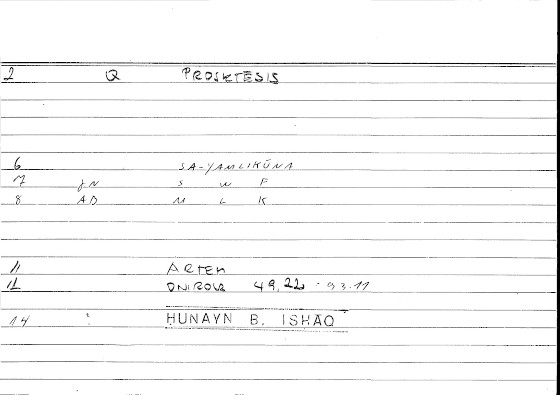 2 Q PROSKTESIS
6 SA-YAMLIKŪNA
7 JN S W F
8 AD M L K
11 ARTEM
12 ONIROCR 49,22 - 93.11
14 : HUNAYN B. ISHAQ